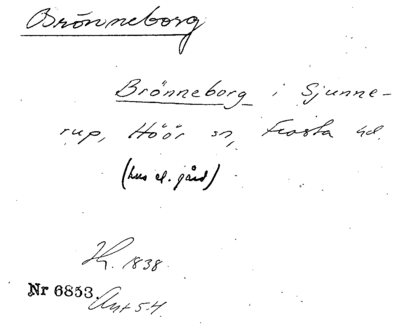 Brönneborg
Brönneborg i Sjunne-
rup, Höör sn, Frosta hd.
(hus el. gård)
Hf. 1838
Nr 6853.
Ant 54